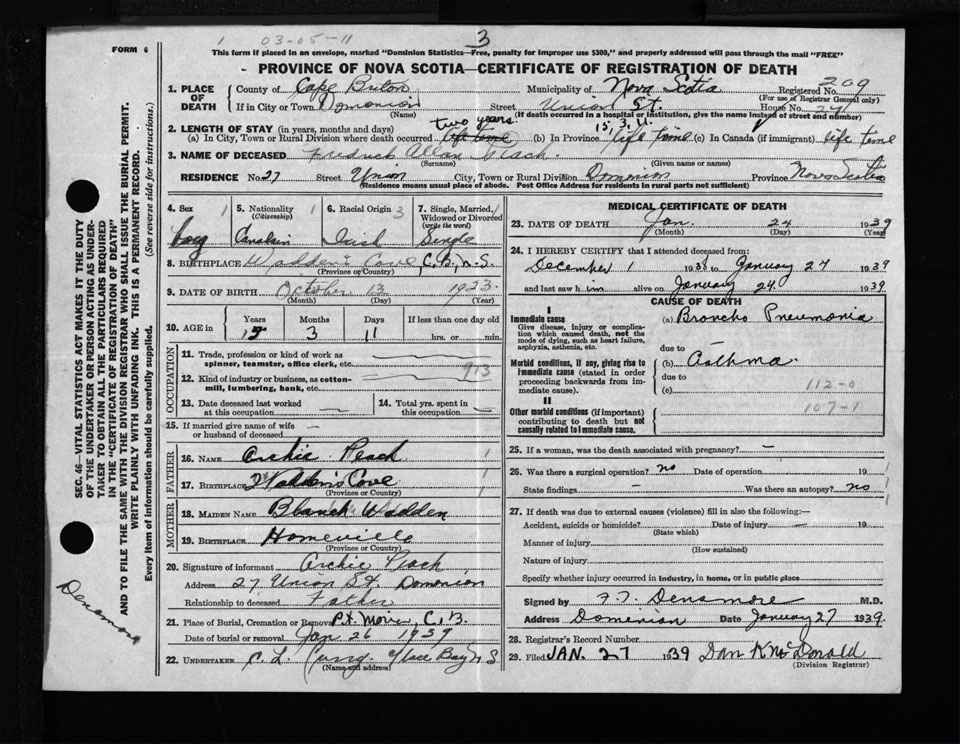 FORM 6
1 03-05-11
3
This form if placed in an envelope, marked "Dominion Statistics—Free, penalty for improper use $300," and properly addressed will pass through the mail "FREE"
PROVINCE OF NOVA SCOTIA—CERTIFICATE OF REGISTRATION OF DEATH
1. PLACE OF DEATH County of Cape Briton Municipality of Nova Scotia Registered No. 209
(For use of Registrar General only)
If in City or Town Domonion Street Union St. House No. 27
(Name) (If death occurred in a hospital or institution, give the name instead of street and number)
two years 15, 3, 11
2. LENGTH OF STAY (in years, months and days)
(a) In City, Town or Rural Division where death occurred life time (b) In Province life time (c) In Canada (if immigrant) life time
3. NAME OF DECEASED Fredrick Allan Peach.
(Surname) (Given name or names)
RESIDENCE No. 27 Street Union City, Town or Rural Division Domonion Province Nova Scotia
(Residence means usual place of abode. Post Office Address for residents in rural parts not sufficient)
4. Sex 1 5. Nationality 1 6. Racial Origin 3 7. Single, Married, 1
(Citizenship) Widowed or Divorced
(write the word)
boy Canadain Irish Single
8. BIRTHPLACE Wadden's Cove, C.B., N.S.
(Province or Country)
9. DATE OF BIRTH October 13 1923
(Month) (Day) (Year)
10. AGE in Years Months Days If less than one day old
15 3 11 hrs. or min.
OCCUPATION
11. Trade, profession or kind of work as
spinner, teamster, office clerk, etc.
913
12. Kind of industry or business, as cotton-
mill, lumbering, bank, etc.
13. Date deceased last worked at this occupation — 14. Total yrs. spent in this occupation —
15. If married give name of wife or husband of deceased —
FATHER
16. NAME Archie Peach 1
17. BIRTHPLACE Wadden's Cove 1
(Province or Country)
MOTHER
18. MAIDEN NAME Blanch Wadden
19. BIRTHPLACE Homeville
(Province or Country)
20. Signature of informant Archie Peach,
Address 27 Union St. Domenion
Relationship to deceased Father
21. Place of Burial, Cremation or Removal Pt. Morien, C.B.
Date of burial or removal Jan 26 1939
22. UNDERTAKER C. L. Glace Bay N S
(Name and address)
MEDICAL CERTIFICATE OF DEATH
23. DATE OF DEATH Jan. 24 1939
(Month) (Day) (Year)
24. I HEREBY CERTIFY that I attended deceased from
December 1 1938 to January 24 1939
and last saw him alive on January 24 1939
CAUSE OF DEATH
I
Immediate cause (a) Broncho Pneumonia
Give disease, injury or complication which caused death, not the mode of dying, such as heart failure, asphyxia, asthenia, etc.
due to
Morbid conditions, if any, giving rise to immediate cause (stated in order proceeding backwards from immediate cause). (b) Asthma
due to
(c) 112-0
II
107-1
Other morbid conditions (if important) contributing to death but not causally related to immediate cause.
25. If a woman, was the death associated with pregnancy? —
26. Was there a surgical operation? no Date of operation 19 1
State findings — Was there an autopsy? no 1
27. If death was due to external causes (violence) fill in also the following:—
Accident, suicide or homicide? Date of injury — 19
(State which)
Manner of injury
(How sustained)
Nature of injury
Specify whether injury occurred in industry, in home, or in public place
Signed by F. T. Densmore M.D.
Address Dominion Date January 27 1939.
28. Registrar's Record Number
29. Filed JAN. 27 1939 Dan K McDonald
(Division Registrar)
SEC. 46—VITAL STATISTICS ACT MAKES IT THE DUTY
OF THE UNDERTAKER OR PERSON ACTING AS UNDER-
TAKER TO OBTAIN ALL THE PARTICULARS REQUIRED
IN THE "CERTIFICATE OF REGISTRATION OF DEATH"
AND TO FILE THE SAME WITH THE DIVISION REGISTRAR WHO SHALL ISSUE THE BURIAL PERMIT.
WRITE PLAINLY WITH UNFADING INK. THIS IS A PERMANENT RECORD.
Every item of information should be carefully supplied. (See reverse side for instructions.)
Densmore